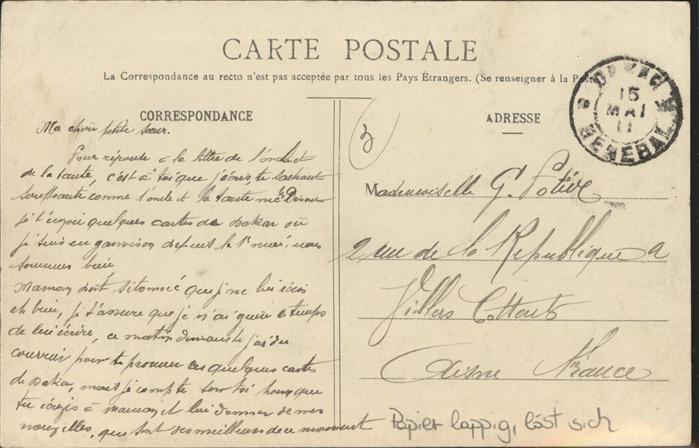 CARTE POSTALE
La Correspondance au recto n'est pas acceptée par tous les Pays Étrangers. (Se renseigner à la
CORRESPONDANCE
Ma chère petite sœur.
Pour réponse à la lettre de l'oncle et
de la tante, c'est à toi que j'écris, te sachant
souffrante comme l'oncle et la tante me
je t'envoi quelques cartes de Dakar où
je suis en garnison depuis le 1er nous
sommes bien
Maman doit que je ne lui écris
et bien, je t'assure que je n'ai guère le temps
de lui écrire, ce matin j'ai
courrir pour te procurer ces quelques cartes
de Dakar, mais je compte sur toi pour que
tu écrives à maman, et lui donner de mes
nouvelles, qui sont des meilleurs en ce moment
3
ADRESSE
DAKAR
15
MAI
11
SENEGAL
Mademoiselle G.
2 rue de la République
Villers Cotterets
Aisne France
Papier lappig, löst sich